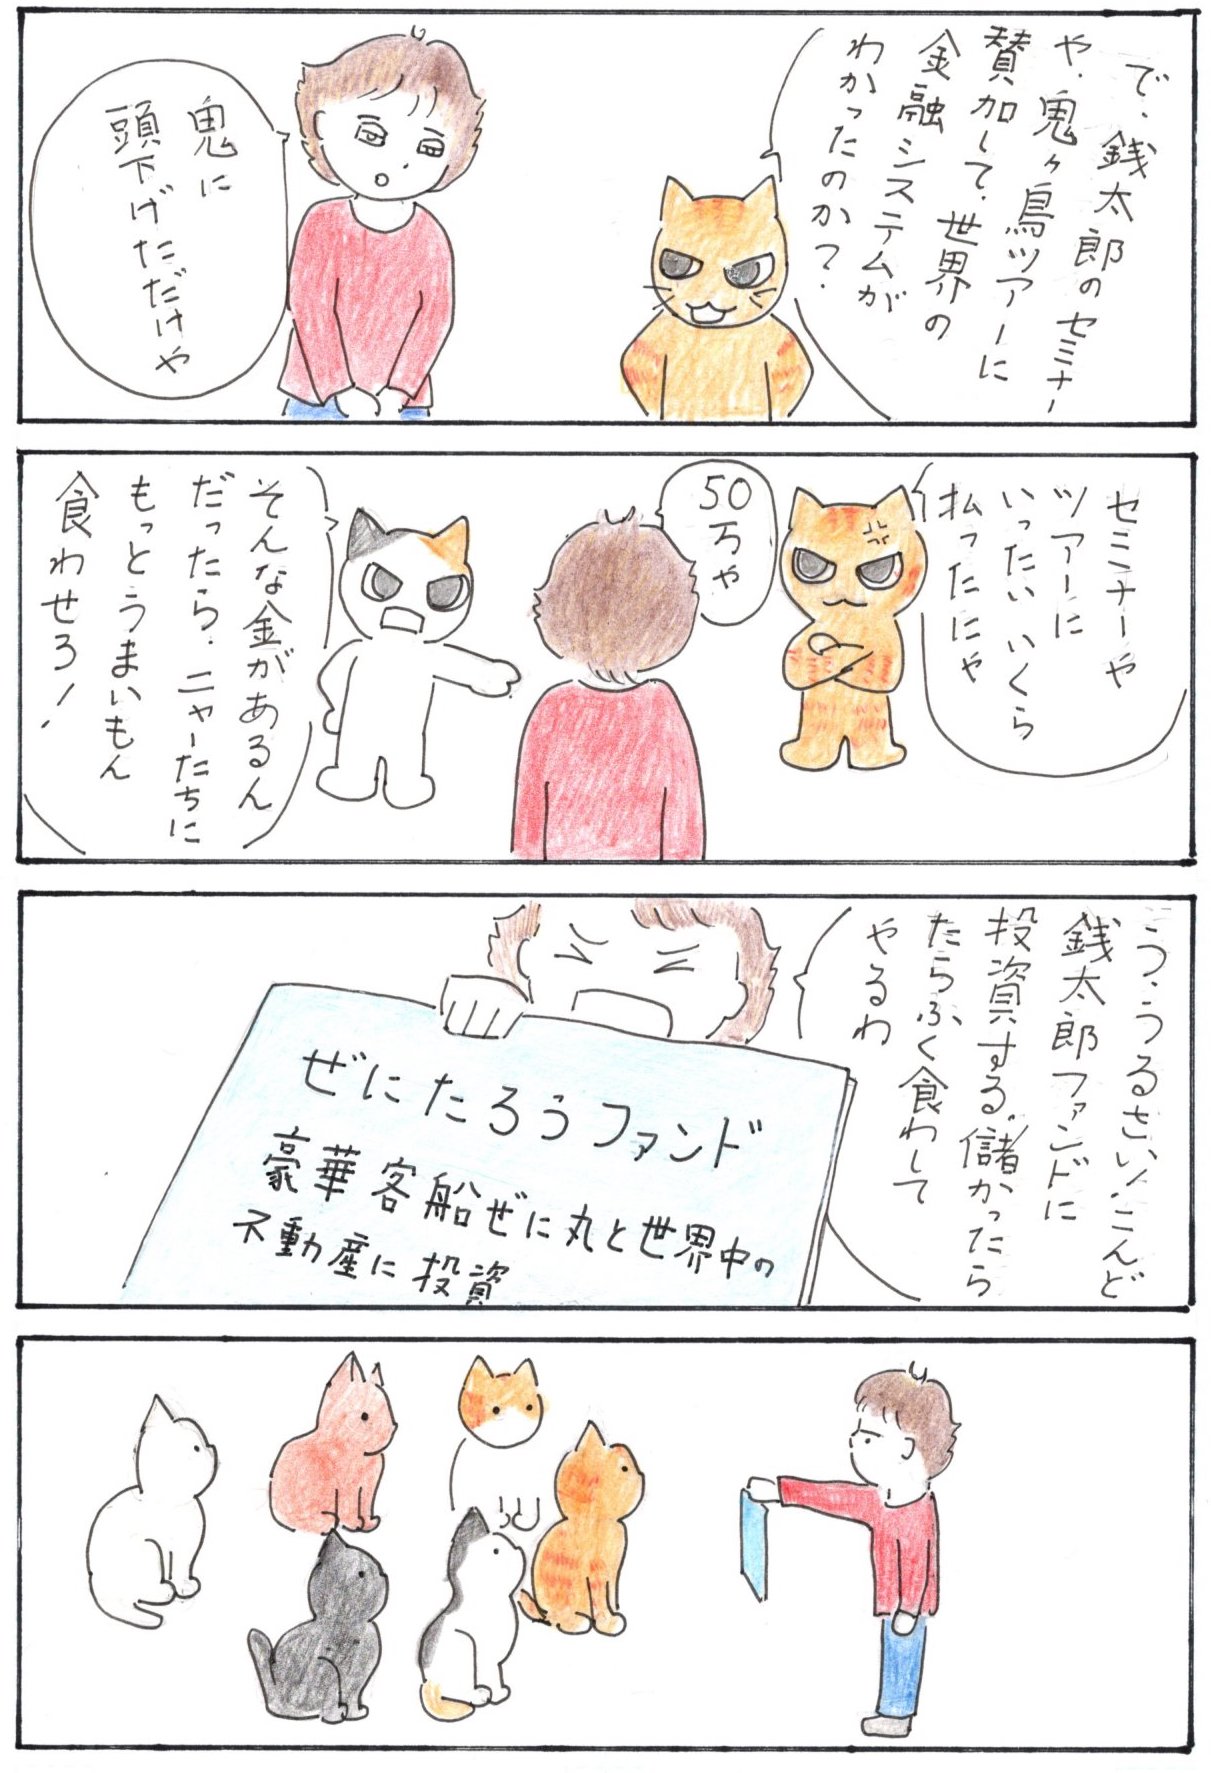 で、銭太郎のセミナー
や、鬼ヶ鳥ツアーに
賛加して、世界の
金融システムが
わかったのか？
鬼に
頭下げただけや
セミナーや
ツアーに
いったいいくら
払ったにゃ
50
万や
そんな金があるん
だったら、ニャーたちに
もっとうまいもん
食わせろ！
う、うるさい！こんど
銭太郎ファンドに
投資する。儲かったら
たらふく食わして
やるわ
ぜにたろうファンド
豪華客船ぜに丸と世界中の
不動産に投資